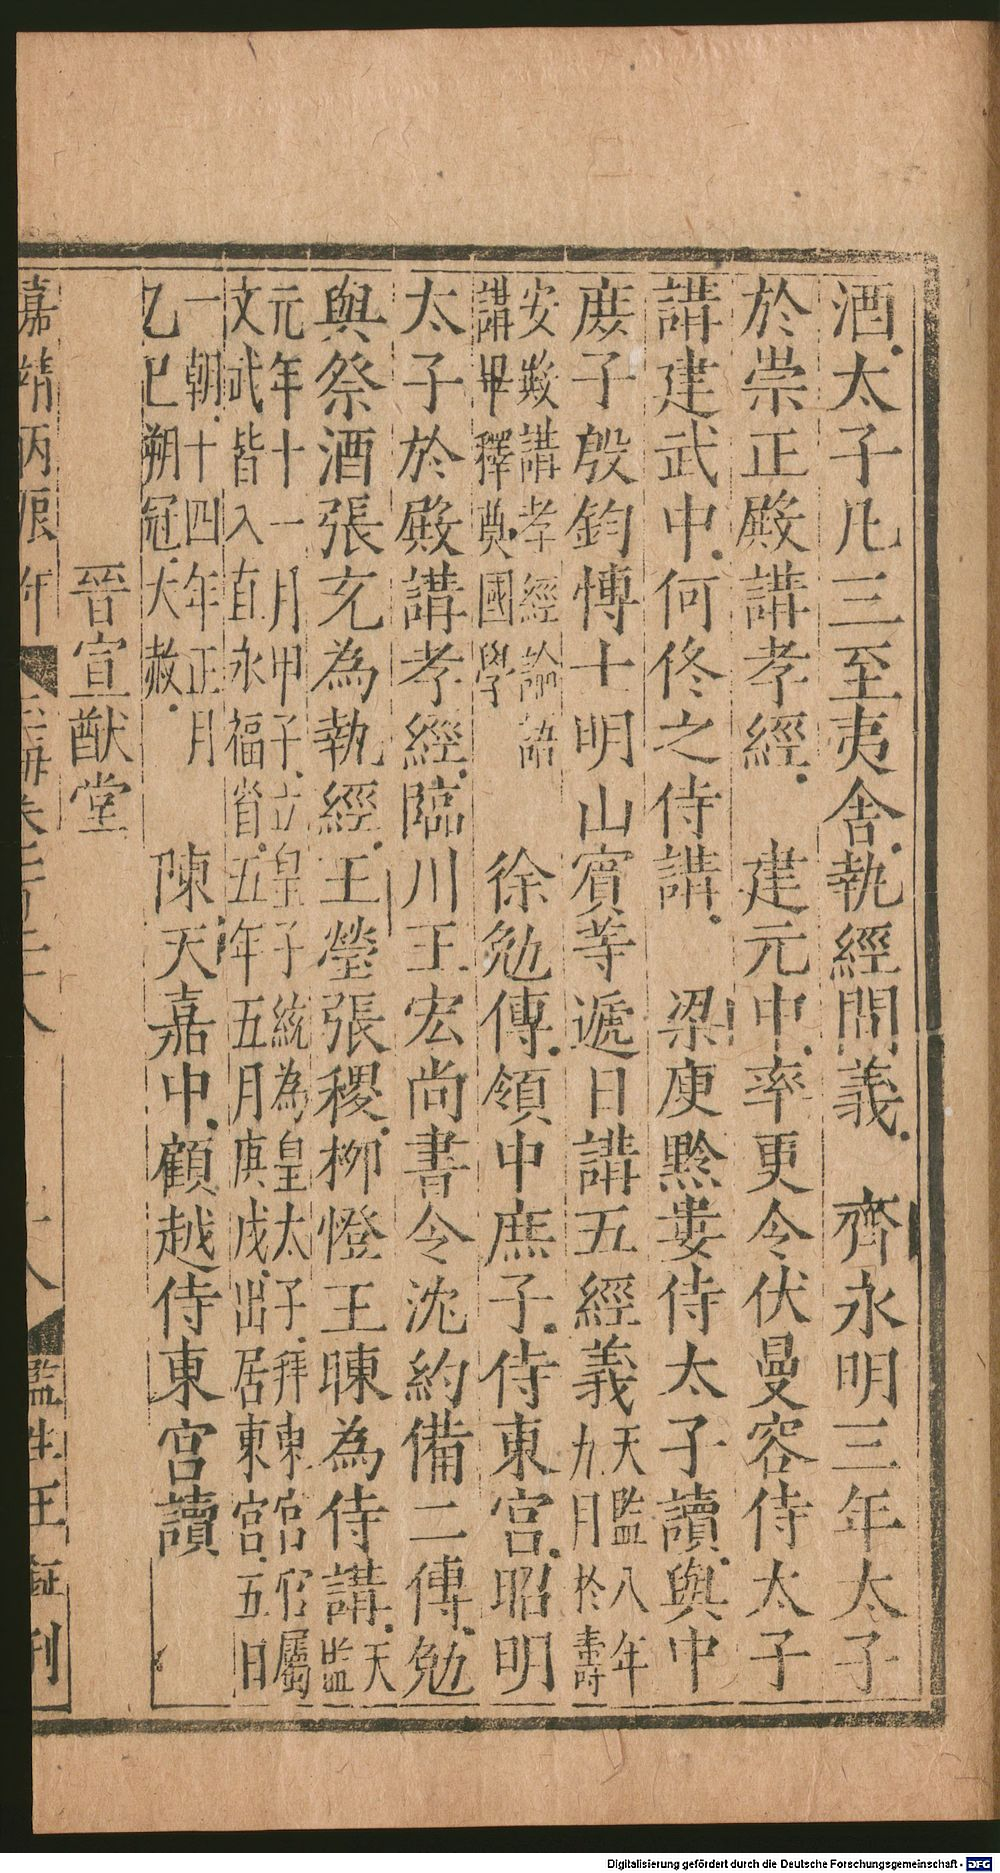 酒太子凡三至夷舍執經問義　齊永明三年太子
於崇正殿講孝經　建元中率更令伏曼容侍太子
講建武中何佟之侍講　梁庾黔婁侍太子讀與中
庶子殷鈞愽士明山賓等遞日講五經義天監八年九月於壽
安殿講孝經論語講畢釋奠國學　徐勉傳領中庶子侍東宮昭明
太子於殿講孝經臨川王宏尚書令沈約備二傅勉
與祭酒張充為執經王瑩張稷柳憕王暕為侍講天監
元年十一月甲子立皇子統為皇太子拜東宮官屬文武皆入直永福省五年五月庚戌出居東宮五日
一朝十四年正月乙巳朔冠大赦　陳天嘉中顧越侍東宮讀
晉宣猷堂
嘉靖丙辰年　　監生王　刊
Digitalisierung gefördert durch die Deutsche Forschungsgemeinschaft - DFG